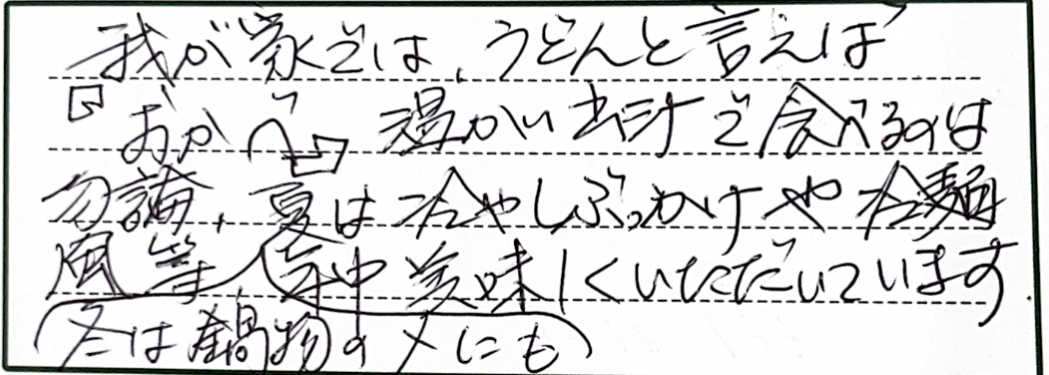 我が家では、うどんと言えば
『おかべ』温かい出汁で食べるのは
勿論、夏は冷やしぶっかけや冷麺
風等、年中美味しくいただいています
(冬は鍋物の〆にも)